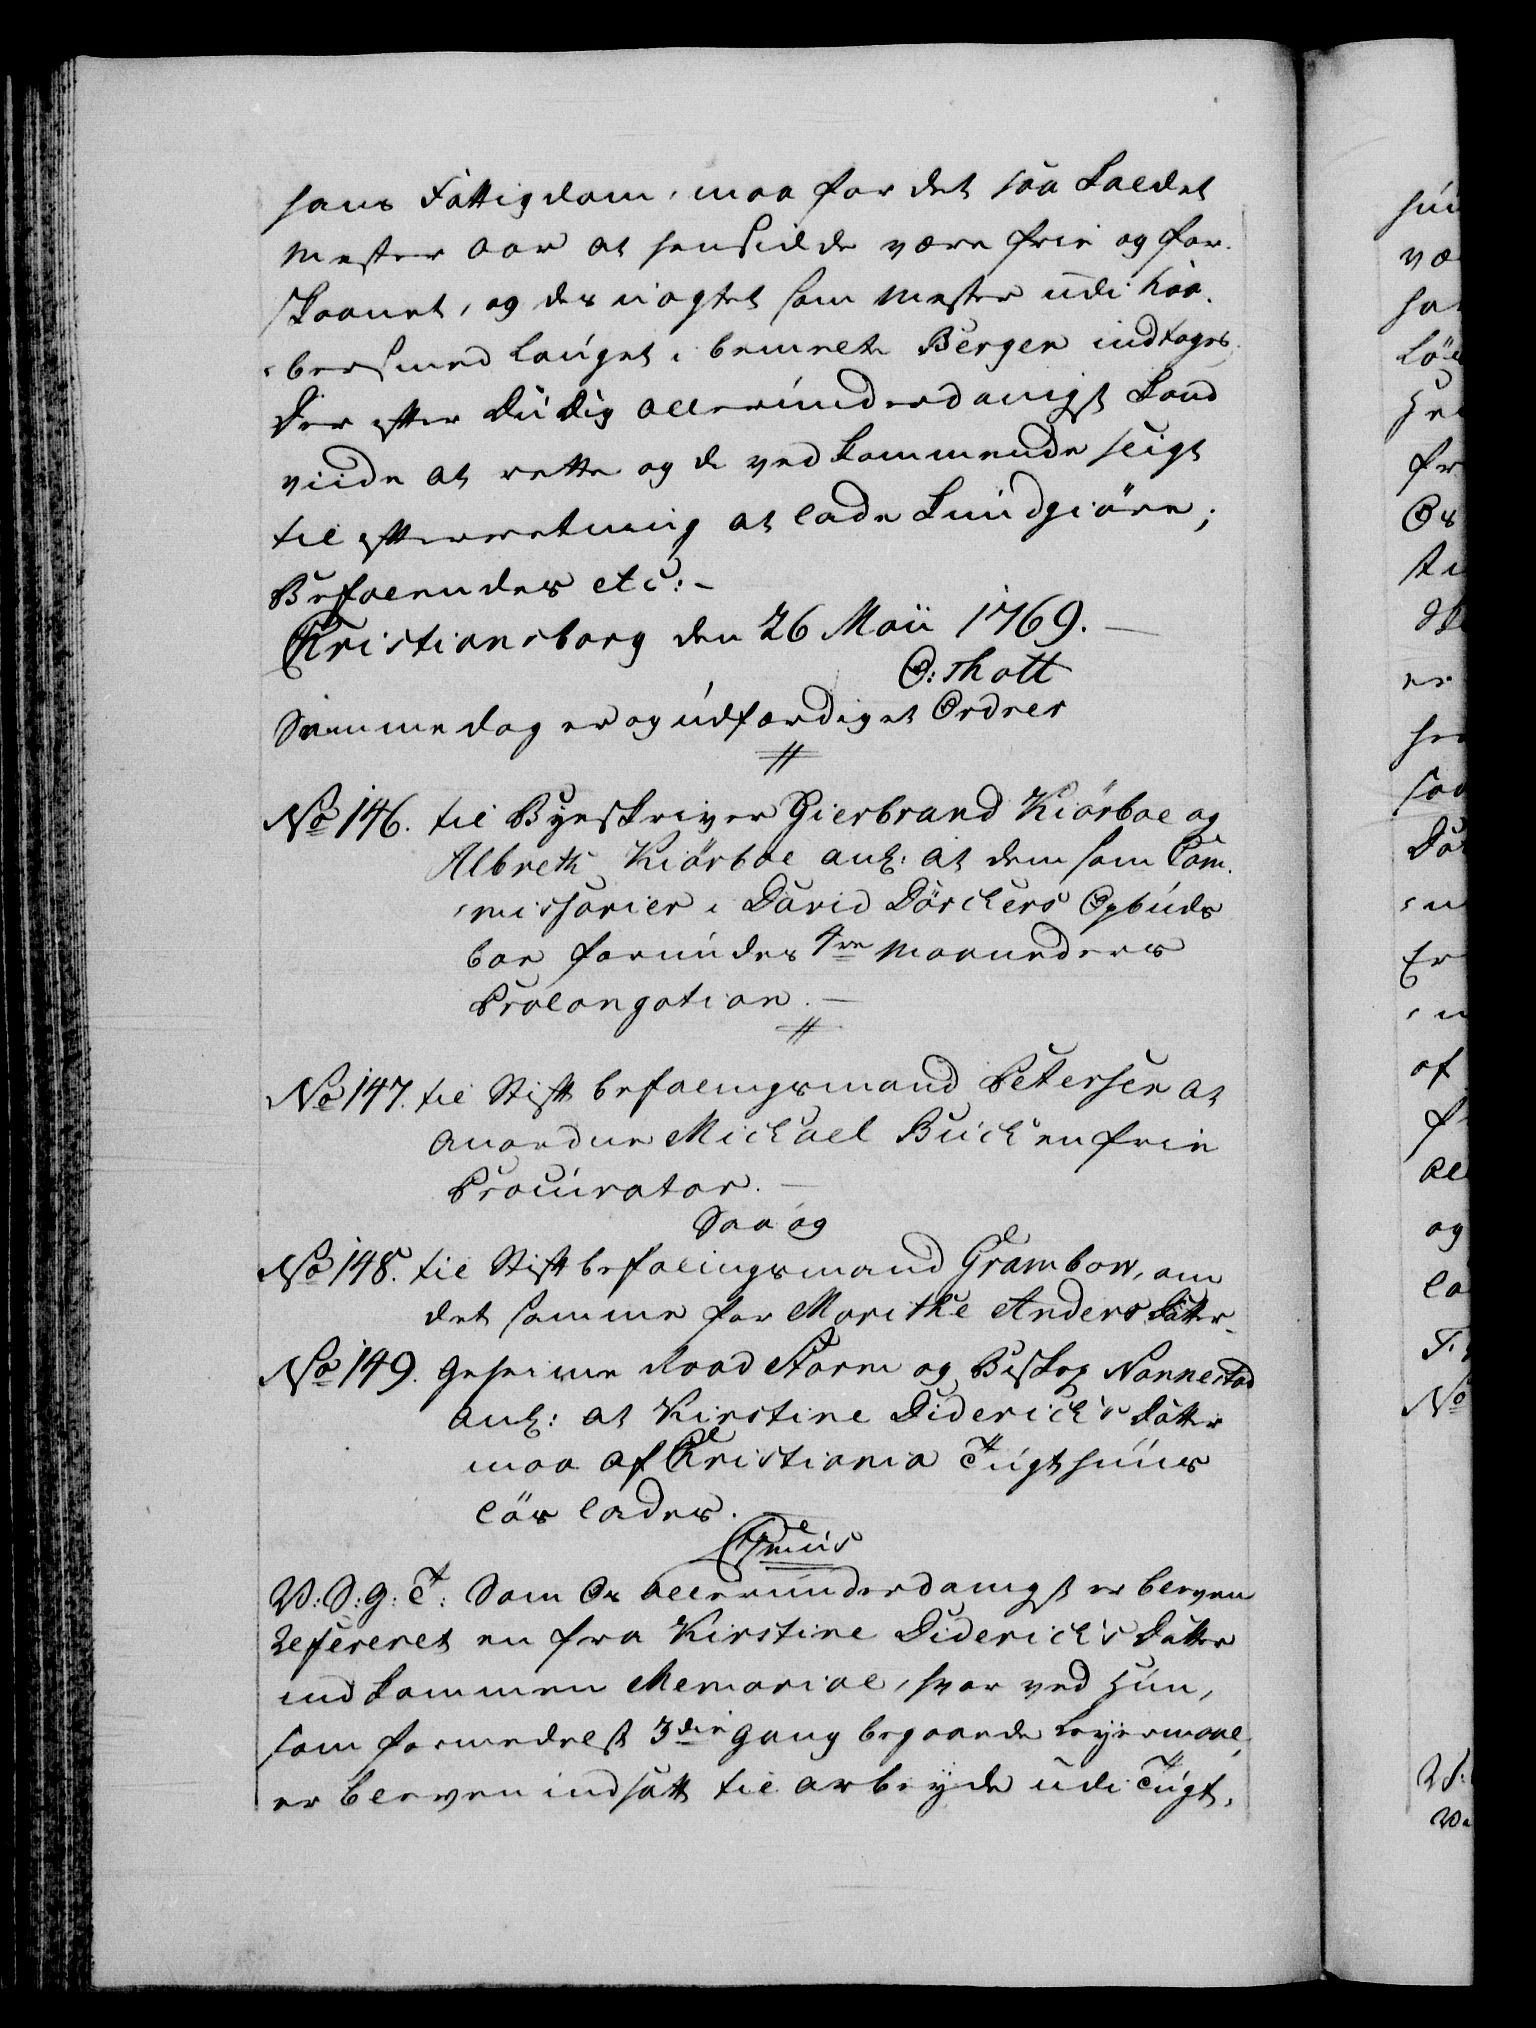 hans Fattigdom, maa for det saa kaldet
mester aar at hensidde være frie og for-
skaanet, og des uagtet som mester udi Kaa-
bersmed lauget i bemelte Bergen indtages.
Der efter Du Dig allerunderdanigst kand
viide at rette og de vedkommende sligt
til efterretning at lade kundgiöre;
Befalendes etc:-
Christiansborg den 26 Maii 1769.-
O: Thott
Samme dag er og udfærdiget Ordres
No 146. til Byeskriver Gierbrand Kiörboe og
Albreth Kiörboe anl: at dem som Com-
missarier i David Dörckers Opbuds
boe forundes 4re Maaneders
Prolongation.-
No 147. til Stiftbefalingsmand Petersen at
anordne Michael Buch en frie
Procurator.-
Saa og
No 148. til Stiftbefalingsmand Grambow, om
det samme for Marithe Anders Datter.
No 149. Geheime Raad Storm og Biskop Nannestad
anl: at Kirstine Diderich's Datter
maa af Christiania Tugthuus
lös lades.
V: S: G: T: Som Os allerunderdanigst er bleven
refereret en fra Kirstine Diderich's Datter
indkommen Memorial, hvor ved hun,
som formedelst 3die gang begaaende Leyermaal
er bleven indsatt til arbeyde udi Tugt-